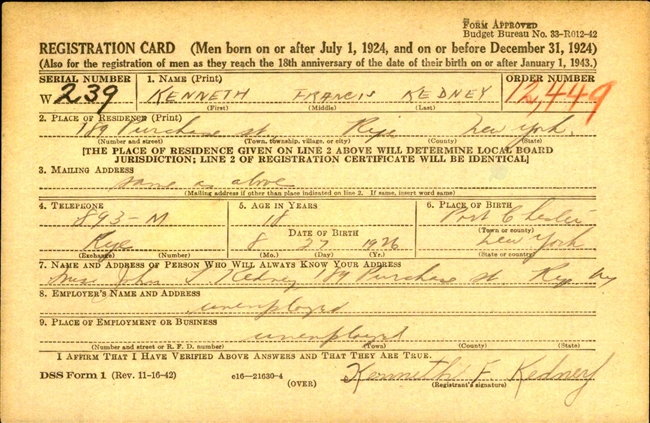 FORM APPROVED
Budget Bureau No. 33-R012-42
REGISTRATION CARD (Men born on or after July 1, 1924, and on or before December 31, 1924)
(Also for the registration of men as they reach the 18th anniversary of the date of their birth on or after January 1, 1943.)
SERIAL NUMBER 1. NAME (Print) ORDER NUMBER
W 239 KENNETH FRANCIS KEDNEY 12,449
(First) (Middle) (Last)
2. PLACE OF RESIDENCE (Print)
189 Purchase st. Rye New York.
(Number and street) (Town, township, village, or city) (County) (State)
[THE PLACE OF RESIDENCE GIVEN ON LINE 2 ABOVE WILL DETERMINE LOCAL BOARD
JURISDICTION; LINE 2 OF REGISTRATION CERTIFICATE WILL BE IDENTICAL]
3. MAILING ADDRESS
same as above
(Mailing address if other than place indicated on line 2. If same, insert word same)
4. TELEPHONE 5. AGE IN YEARS 6. PLACE OF BIRTH
893-M 18 Port Chester
DATE OF BIRTH (Town or county)
Rye 8 27 1926 New York
(Exchange) (Number) (Mo.) (Day) (Yr.) (State or country)
7. NAME AND ADDRESS OF PERSON WHO WILL ALWAYS KNOW YOUR ADDRESS
Mrs John Kedney 189 Purchase st Rye NY
8. EMPLOYER'S NAME AND ADDRESS
unemployed
9. PLACE OF EMPLOYMENT OR BUSINESS
unemployed
(Number and street or R. F. D. number) (Town) (County) (State)
I AFFIRM THAT I HAVE VERIFIED ABOVE ANSWERS AND THAT THEY ARE TRUE.
DSS Form 1 (Rev. 11-16-42) c16—21630-4 Kenneth F Kedney
(OVER) (Registrant's signature)